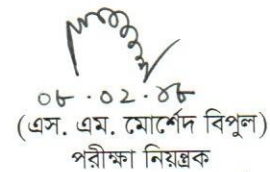 ০৮.০২.০৮
(এস. এম. মোর্শেদ বিপুল)
পরীক্ষা নিয়ন্ত্রক